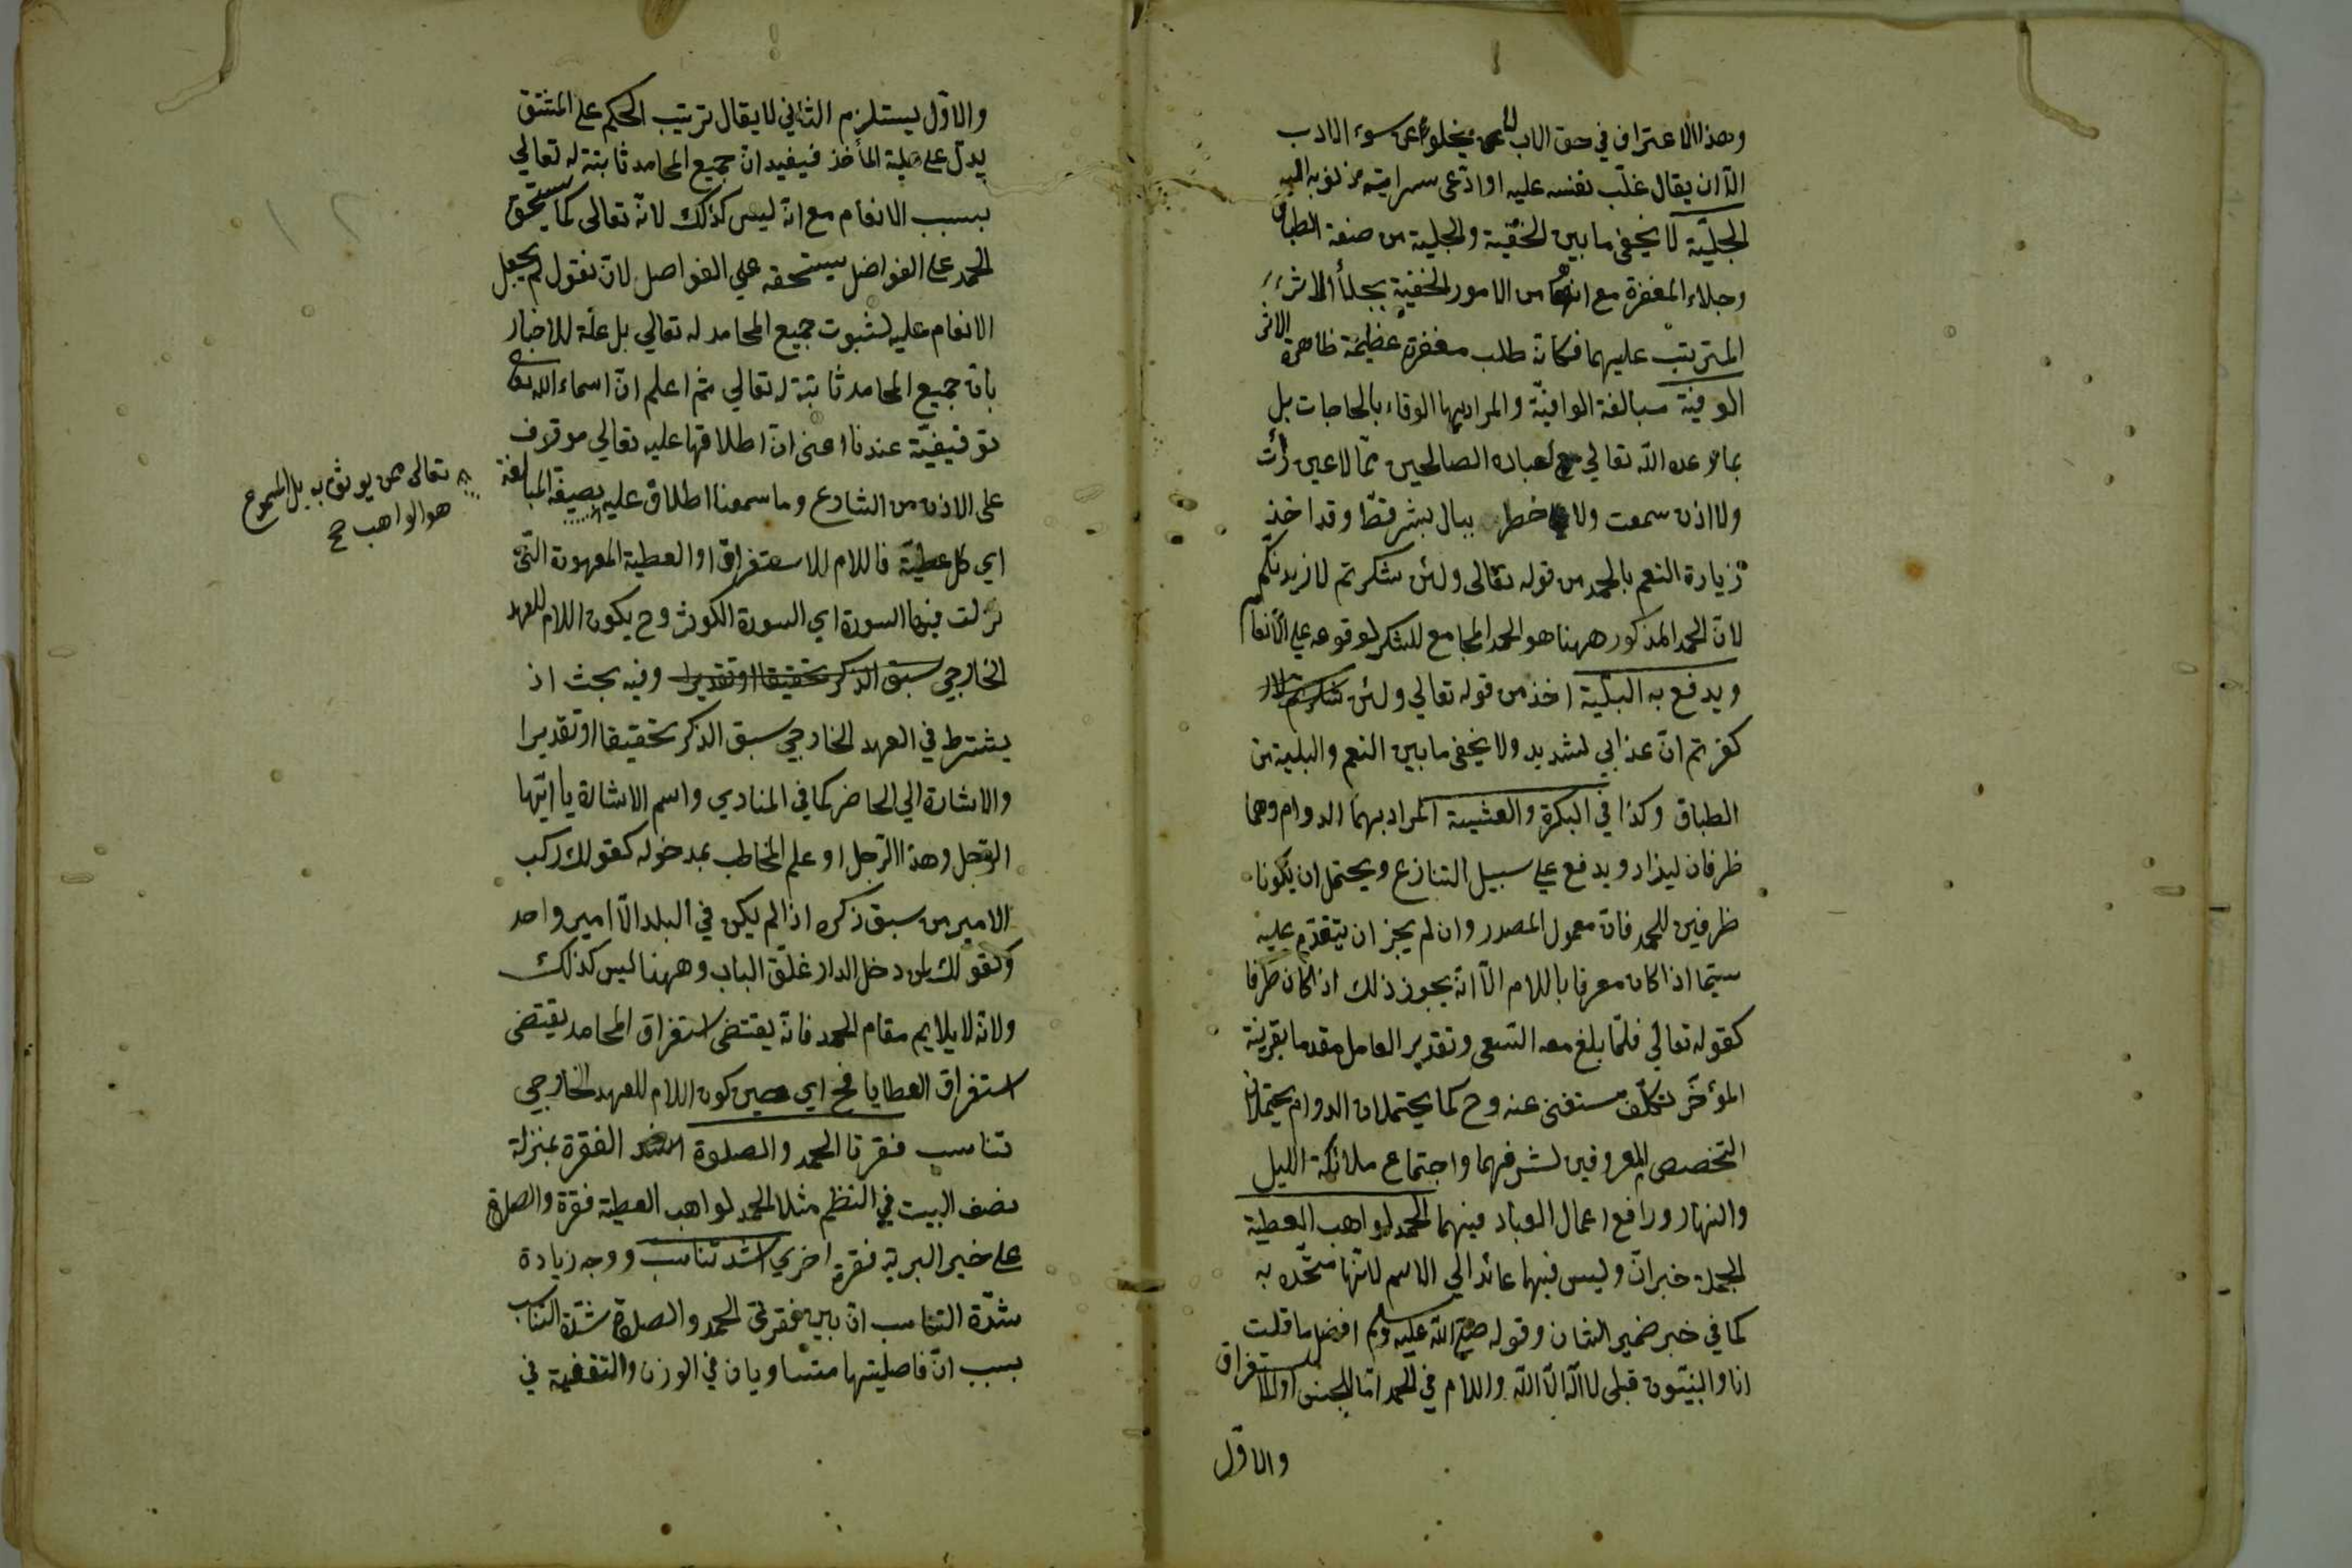 وهذا الاعتراف في حق الاب لا يخلو عن سوء الادب
الّا ان يقال غلّب نفسه عليه او ادّعى سراية ذنوبه اليه
الجليّة لا يخفى ما بين الخفيّة والجلية من صنعة الطباق
وجلاء المغفرة مع انها من الامور الخفيّة بجلاء الاثر
المترتب عليهما فكانه طلب مغفرة عظيمة ظاهرة الاثر
الوفيّة مبالغة الوافيّة والمراد بها الوفاء بالحاجات بل
بما وعده الله تعالي لعباده الصالحين ممّا لا عين رأت
ولا اذن سمعت ولا خطر ببال بشر قطّ وقد اخذ
زيادة النعم بالحمد من قوله تعالى ولئن شكرتم لازيدنكم
لانّ الحمد المذكور ههنا هو الحمد الجامع للشكر لوقوعه علي الانعام
ويدفع به البليّة اخذ من قوله تعالي ولئن
كفرتم انّ عذابي لشديد ولا يخفى ما بين النعم والبلية من
الطباق وكذا في البكرة والعشية المراد بهما الدوام وهما
ظرفان ليزاد ويدفع علي سبيل التنازع ويحتمل ان يكونا
ظرفين للحمد فانّ معمول المصدر وان لم يجز ان يتقدّم عليه
سيّما اذا كان معرفا باللام الّا انه يجوز ذلك اذا كان ظرفا
كقوله تعالي فلمّا بلغ معه السّعي وتقدير العامل مقدما بقرينة
المؤخّر تكلّف مستغنى عنه وح كما يحتملان الدوام يحتملان
التخصص المعروفين لشرفهما واجتماع ملائكة الليل
والنهار ورافع اعمال العباد فيهما الحمد لواهب العطية
الجملة خبر انّ وليس فيها عائد الي الاسم لانّها متّحدة به
كما في خبر ضمير الشان وقوله صلى الله عليه وسلم افضل ما قلت
انا والنبيّون قبلى لا اله الّا الله واللام في الحمد امّا للجنس او للاستغراق
والاوّل
والاوّل يستلزم الثاني لا يقال ترتيب الحكم على المشتق
يدلّ على علية المأخذ فيفيد انّ جميع المحامد ثابتة له تعالي
بسبب الانعام مع انّه ليس كذلك لانّه تعالى كما يستحق
الحمد على الفواضل يستحقه علي الفواصل لانّ نقول لم يجعل
الانعام عليه لثبوت جميع المحامد له تعالي بل علّة للاخبار
بانّ جميع المحامد ثابتة له تعالي ثم اعلم انّ اسماء الله تعالى
توقيفيّة عندنا اعنى انّ اطلاقها عليه تعالي موقوف
على الاذن من الشارع وما سمعنا اطلاق عليه بصيغة المبالغة
تعالى ممن يوثق به بل المسموع
هو الواهب صح
اي كل عطيّة فاللام للاستغراق او العطية المعهودة الّتي
نزلت فيها السورة اي السورة الكوثر وح يكون اللام للعهد
الخارجي سبق الذكر تحقيقا او تقديرا وفيه بحث اذ
يشترط في العهد الخارجي سبق الذكر تحقيقا او تقديرا
والاشارة الي الحاضر كما في المنادي واسم الاشارة يا ايّها
الرّجل وهذا الرّجل او علم المخاطب بمدخوله كقولك ركب
الامير من سبق ذكره اذا لم يكن في البلد الّا امير واحد
وكقولك لمن دخل الدار غلّق الباب وههنا ليس كذلك
ولانّه لا يلايم مقام الحمد فانّه يقتضى استغراق المحامد يقتضى
استغراق العطايا فح اي حين كون اللام للعهد الخارجي
تناسب فقرتا الحمد والصلوة الفقرة بمنزلة
نصف البيت في النظم مثلا الحمد لواهب العطية فقرة والصلوة
على خير البرية فقرة اخري اشد تناسب ووجه زيادة
شدّة التناسب انّ بين فقرتى الحمد والصلاة شدّة التناسب
بسبب انّ فاصليتهما متساويان في الوزن والتقفية في